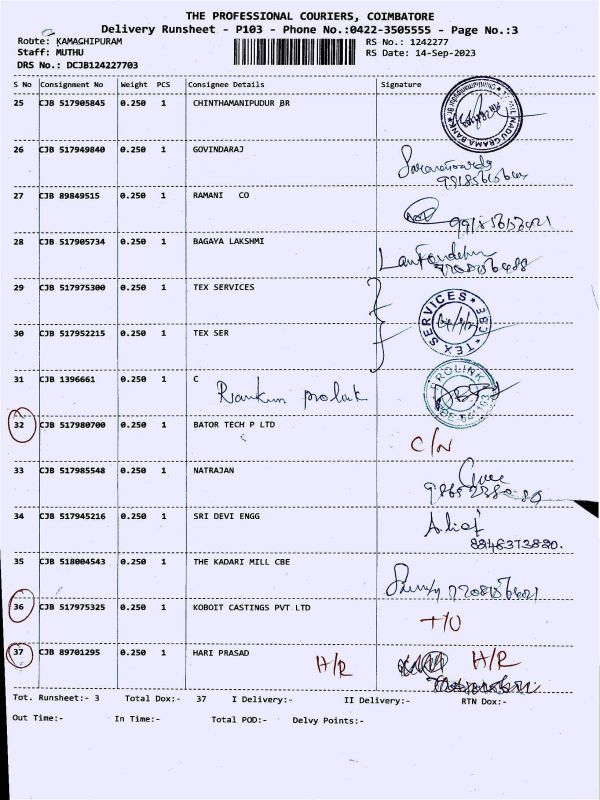 THE PROFESSIONAL COURIERS, COIMBATORE
Delivery Runsheet - P103 - Phone No.:0422-3505555 - Page No.:3
Route: KAMACHIPURAM RS No.: 1242277
Staff: MUTHU RS Date: 14-Sep-2023
DRS No.: DCJB124227703
S No Consignment No Weight PCS Consignee Details Signature
25 CJB 517905845 0.250 1 CHINTHAMANIPUDUR BR
26 CJB 517949840 0.250 1 GOVINDARAJ
27 CJB 89849515 0.250 1 RAMANI CO
28 CJB 517905734 0.250 1 BAGAYA LAKSHMI
29 CJB 517975300 0.250 1 TEX SERVICES
TEX SERVICES
30 CJB 517952215 0.250 1 TEX SER
31 CJB 1396661 0.250 1 C
PROLINK
32 CJB 517980700 0.250 1 BATOR TECH P LTD
C/N
33 CJB 517985548 0.250 1 NATRAJAN
34 CJB 517945216 0.250 1 SRI DEVI ENGG
35 CJB 518004543 0.250 1 THE KADARI MILL CBE
36 CJB 517975325 0.250 1 KOBOIT CASTINGS PVT LTD
37 CJB 89701295 0.250 1 HARI PRASAD
H/R H/R
Tot. Runsheet:- 3 Total Dox:- 37 I Delivery:- II Delivery:- RTN Dox:-
Out Time:- In Time:- Total POD:- Delvy Points:-